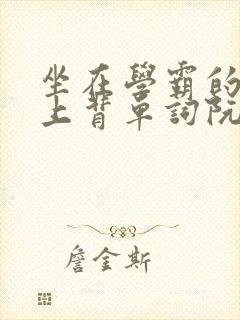 坐在學霸的
上背單詞阮
詹金斯